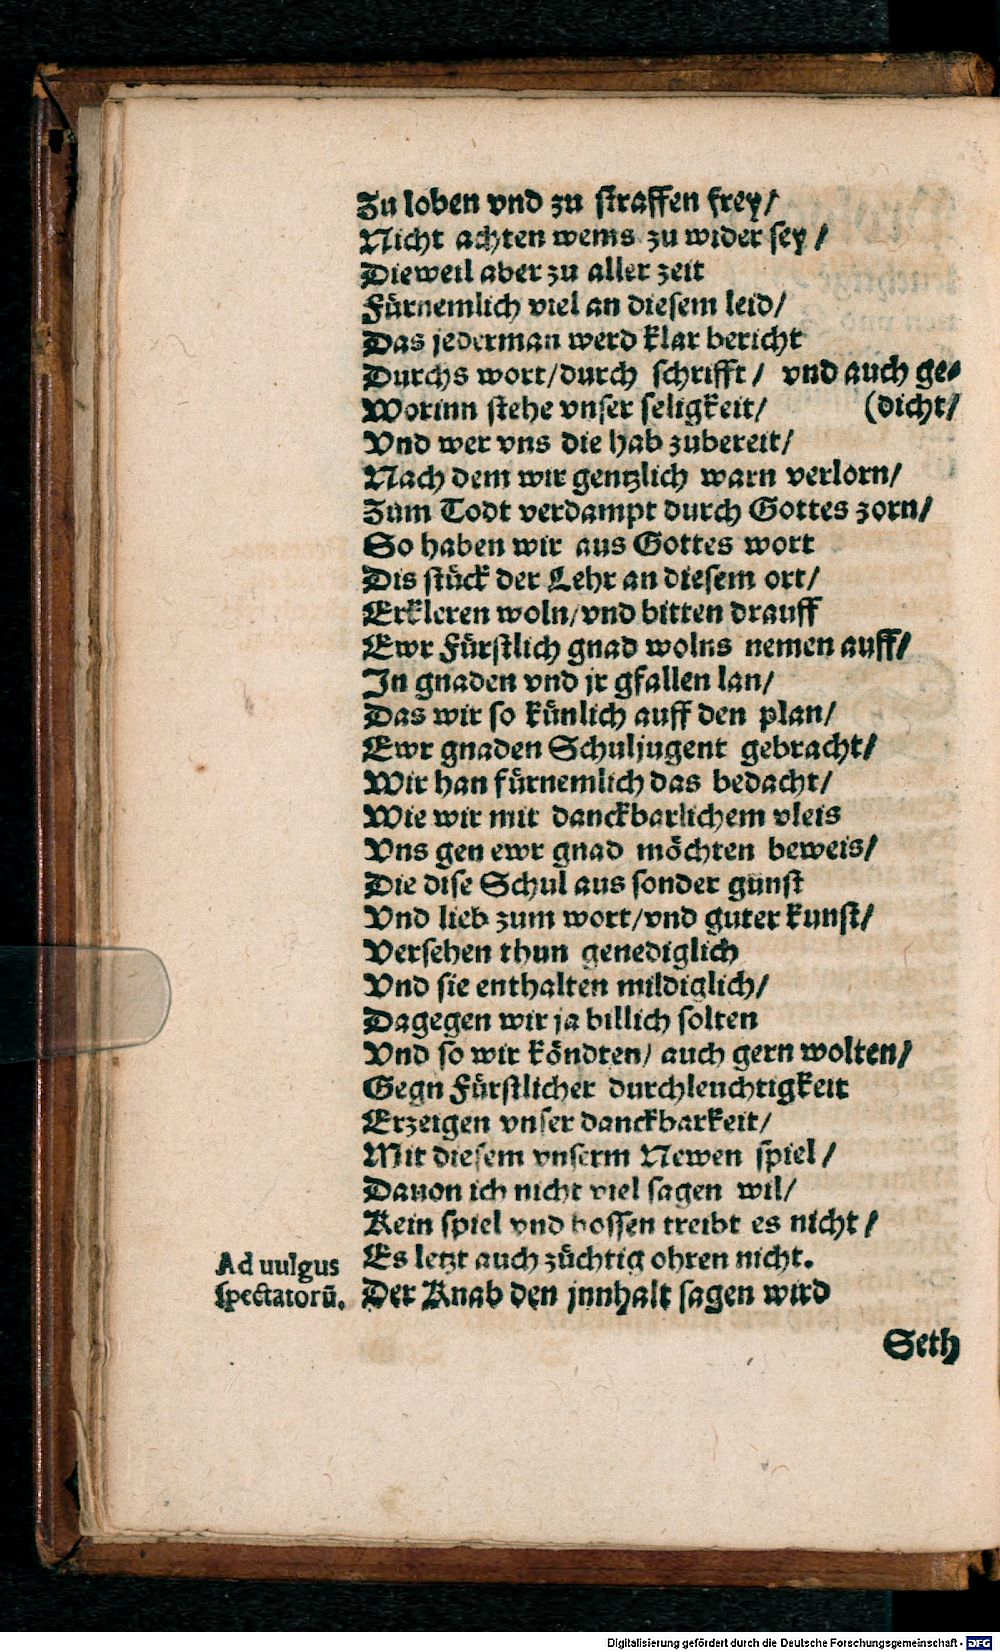 Zu loben vnd zu straffen frey/
Nicht achten wems zu wider sey/
Dieweil aber zu aller zeit
Fürnemlich viel an diesem leid/
Das jederman werd klar bericht
Durchs wort/durch schrifft/ vnd auch ge-
Worinn stehe vnser seligkeit/ (dicht/
Vnd wer vns die hab zubereit/
Nach dem wir gentzlich warn verlorn/
Zum Todt verdampt durch Gottes zorn/
So haben wir aus Gottes wort
Dis stück der Lehr an diesem ort/
Erkleren woln/vnd bitten drauff
Ewr Fürstlich gnad wolns nemen auff/
In gnaden vnd jr gfallen lan/
Das wir so künlich auff den plan/
Ewr gnaden Schuljugent gebracht/
Wir han fürnemlich das bedacht/
Wie wir mit danckbarlichem vleis
Vns gen ewr gnad möchten beweis/
Die dise Schul aus sonder gunst
Vnd lieb zum wort/vnd guter kunst/
Versehen thun genediglich
Vnd sie enthalten mildiglich/
Dagegen wir ja billich solten
Vnd so wir köndten/ auch gern wolten/
Gegn Fürstlicher durchleuchtigkeit
Erzeigen vnser danckbarkeit/
Mit diesem vnserm Newen spiel/
Dauon ich nicht viel sagen wil/
Kein spiel vnd bossen treibt es nicht/
Es letzt auch züchtig ohren nicht.
Ad uulgus
spectatorū.
Der Knab den jnnhalt sagen wird
Seth
Digitalisierung gefördert durch die Deutsche Forschungsgemeinschaft - DFG